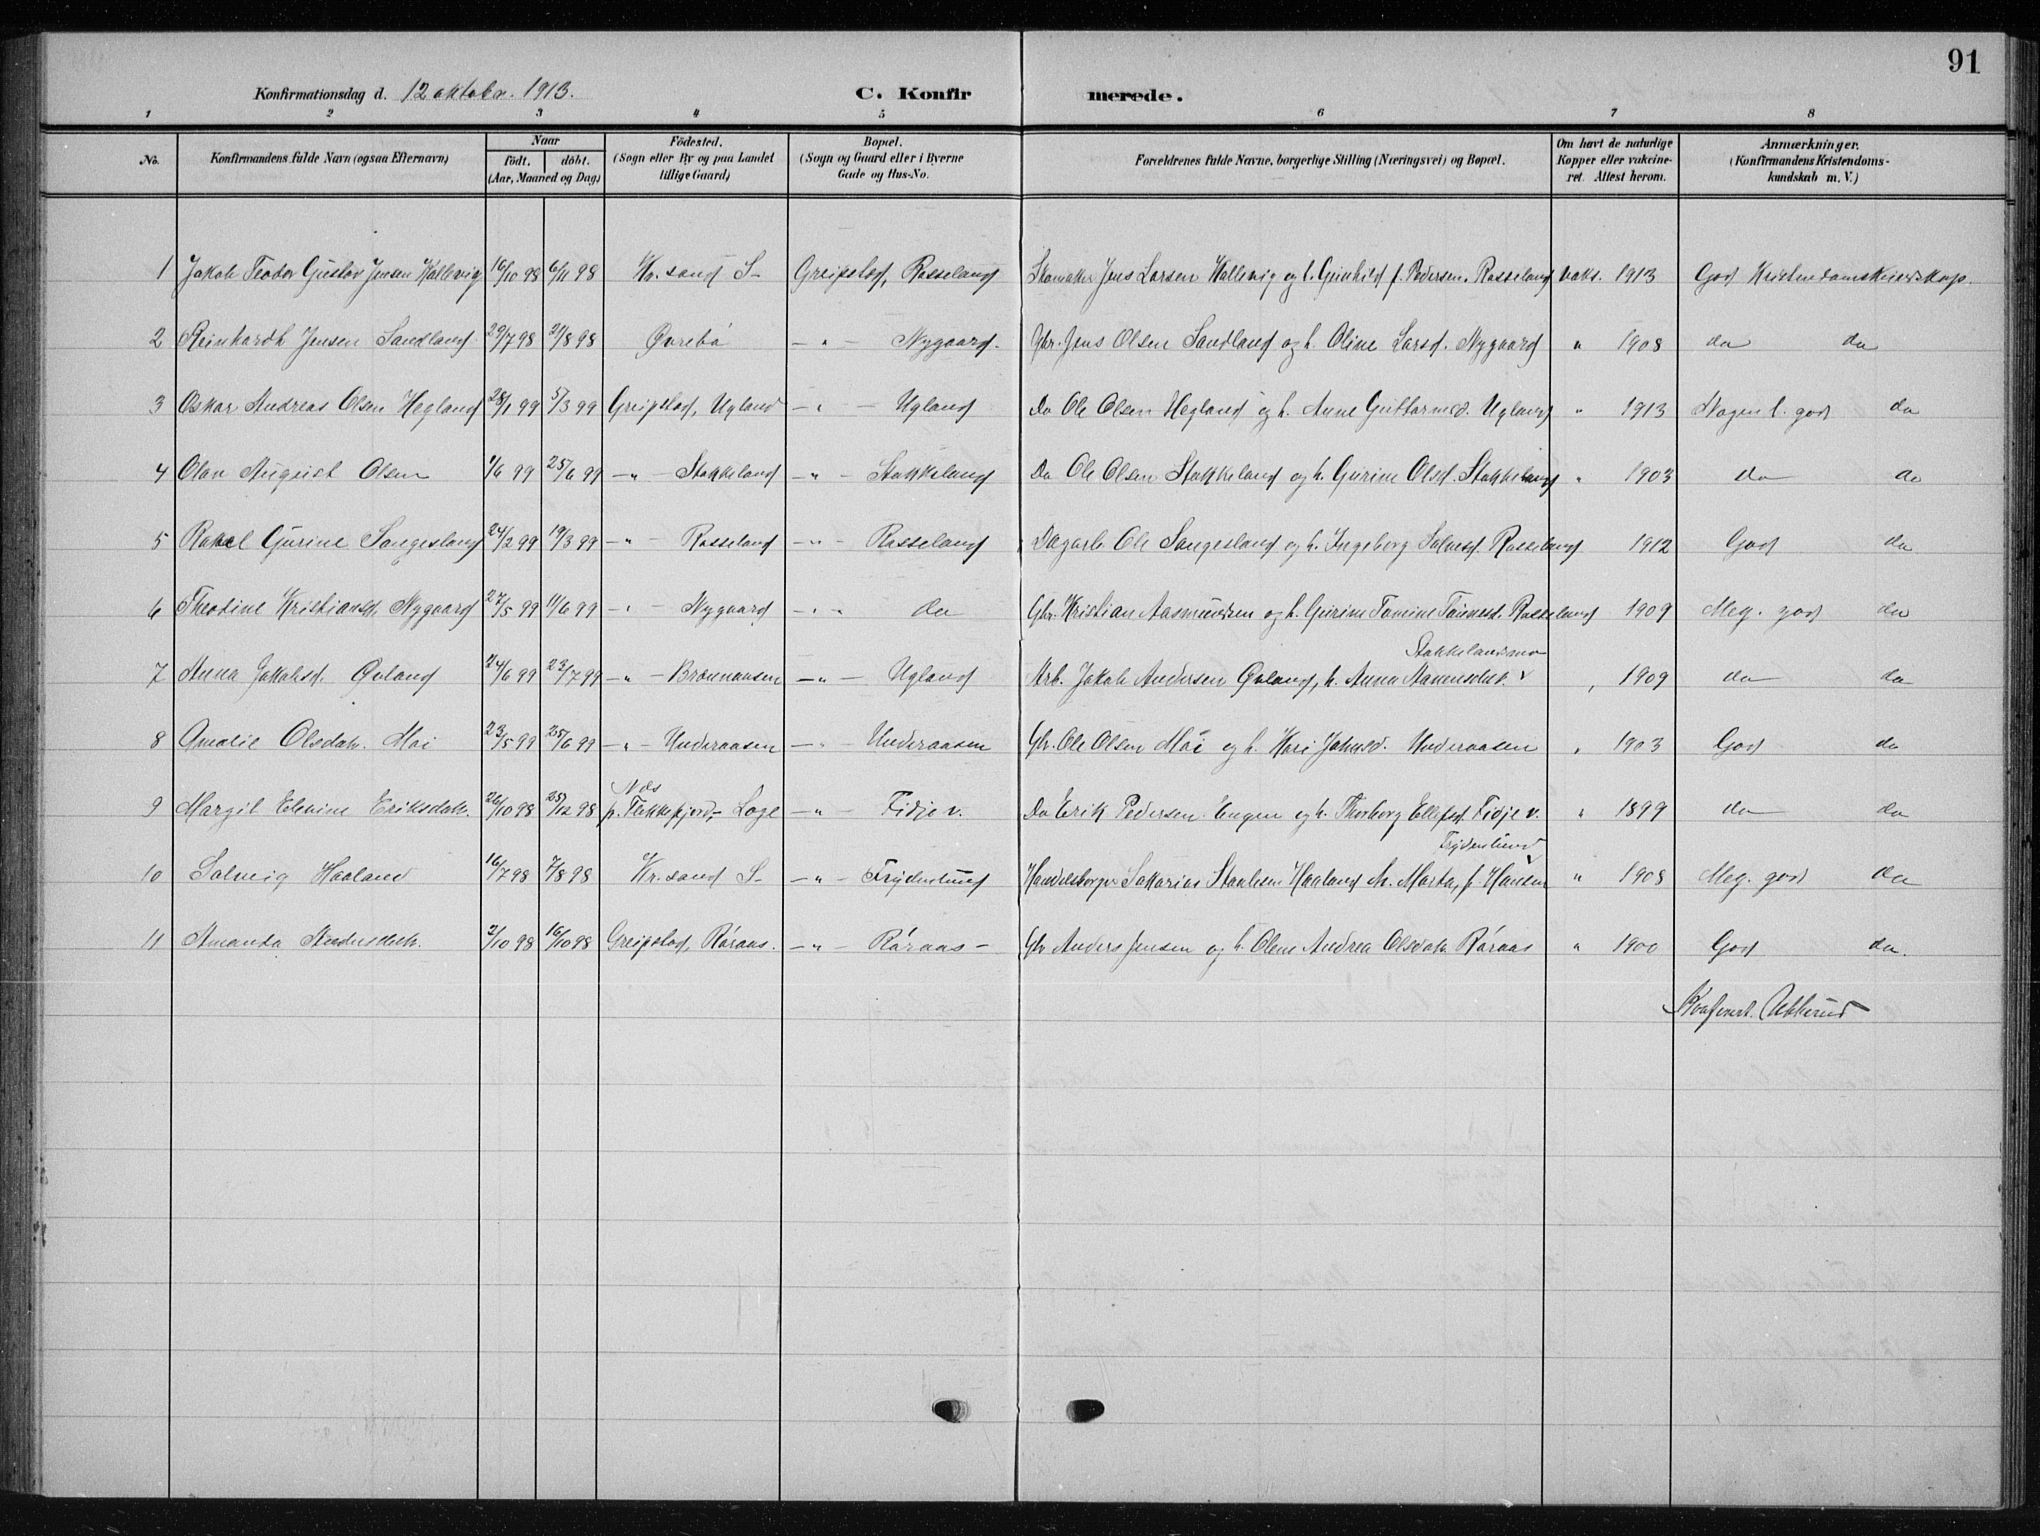 91
Konfirmationsdag d. 12 oktobr. 1913. C. Konfirmerede.
1 2 3 4 5 6 7 8
No. Konfirmandens fulde Navn (ogsaa Efternavn) Naar födt. döbt. (Aar, Maaned og Dag) Födested. (Sogn eller By og paa Landet tillige Gaard) Bopæl. (Sogn og Gaard eller i Byerne Gade og Hus-No. Forældrenes fulde Navne, borgerlige Stilling (Næringsvei) og Bopæl. Om havt de naturlige Kopper eller vakcineret. Attest herom. Anmærkninger. (Konfirmandens Kristendomskundskab m. V.)
1 Jakob Teodor Gustav Jensen Kallevig 16/10 98 6/11 98 Kr.sand S- Greipstad, Rosseland Skomaker Jens Larsen Kallevig og h. Gunhild f. Pedersen. Rosseland vaks. 1913 God Kristendomskundskap.
2 Reinhardt Jensen Sandland 29/7 98 21/8 98 Øvrebö — " — Nygaard. Gbr. Jens Olsen Sandland og h. Oline Larsd. Nygaard " 1908 do do
3 Oskar Andreas Olsen Hegland 28/1 99 5/3 99 Greipstad, Ugland — " — Ugland Do Ole Olsen Hegland og h. Anne Guttormsd. Ugland " 1913 Nogenl. god do
4 Olav August Olsen 1/6 99 25/6 99 — " — Stokkeland — " — Stokkeland Do Ole Olsen Stokkeland og h. Gurine Olsd. Stokkeland " 1903 do do
5 Rakel Gurine Sangesland 24/2 99 19/3 99 — " — Rosseland — " — Rosseland Dagarb. Ole Sangesland og h. Ingeborg Salvesd. Rosseland 1912 God do
6 Theodine Kristiansd. Nygaard 27/5 99 11/6 99 — " — Nygaard — " — do Gbr. Kristian Aasmundsen og h. Gurine Tomine Tönnesd. Rosseland 1909 Meg. god do
Stokkelandsmo
7 Anna Jakobsd. Øvland 24/6 99 23/7 99 — " — Brønnaasen — " — Ugland Arb. Jakob Andersen Øvland, h. Anna " 1909 do do
8 Amalie Olsdatr. Moi 23/5 99 25/6 99 — " — Underaasen — " — Underaasen Gbr. Ole Olsen Moi og h. Kari Johnsd. Underaasen " 1903 God do
9 Margit Elevine Eriksdatr. 26/10 98 25/12 98 Næs p. Flekkefjord, Loge — " — Fidje v. Do Erik Pedersen Eugen og h. Thorborg Ellefsd. Fidje v. " 1899 do do
Frydenlund
10 Solveig Haaland 16/7 98 7/8 98 Kr.sand S- — " — Frydenlund Handelsborger Sakarias Staalesen Haaland h. Marta, f. Hansen " 1908 Meg. god do
11 Amanda Andersdatr. 2/10 98 16/10 98 Greipstad, Röraas. — " — Röraas — Gbr Anders Jensen og h. Olene Andrea Olsdatr. Röraas " 1900 God do.